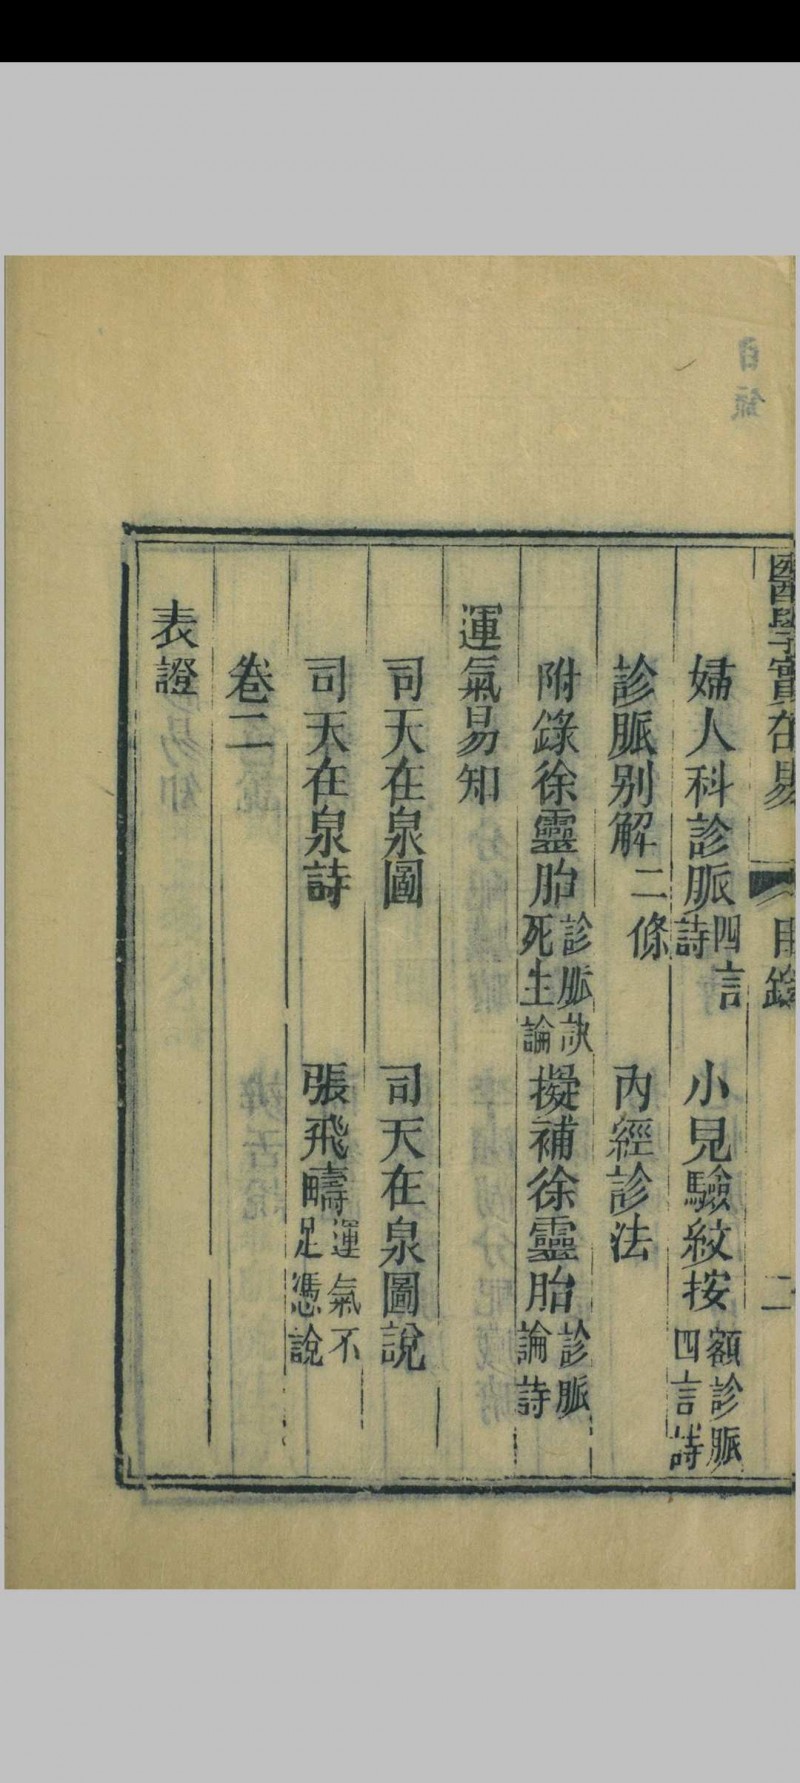 醫學實在易
目錄
二
婦人科診脈四言詩 小兒驗紋按額診脈四言詩
診脈别解二條 內經診法
附錄徐靈胎診脈訣死生論 擬補徐靈胎診脈論詩
運氣易知
司天在泉圖 司天在泉圖說
司天在泉詩 張飛疇運氣不足憑說
卷二
表證